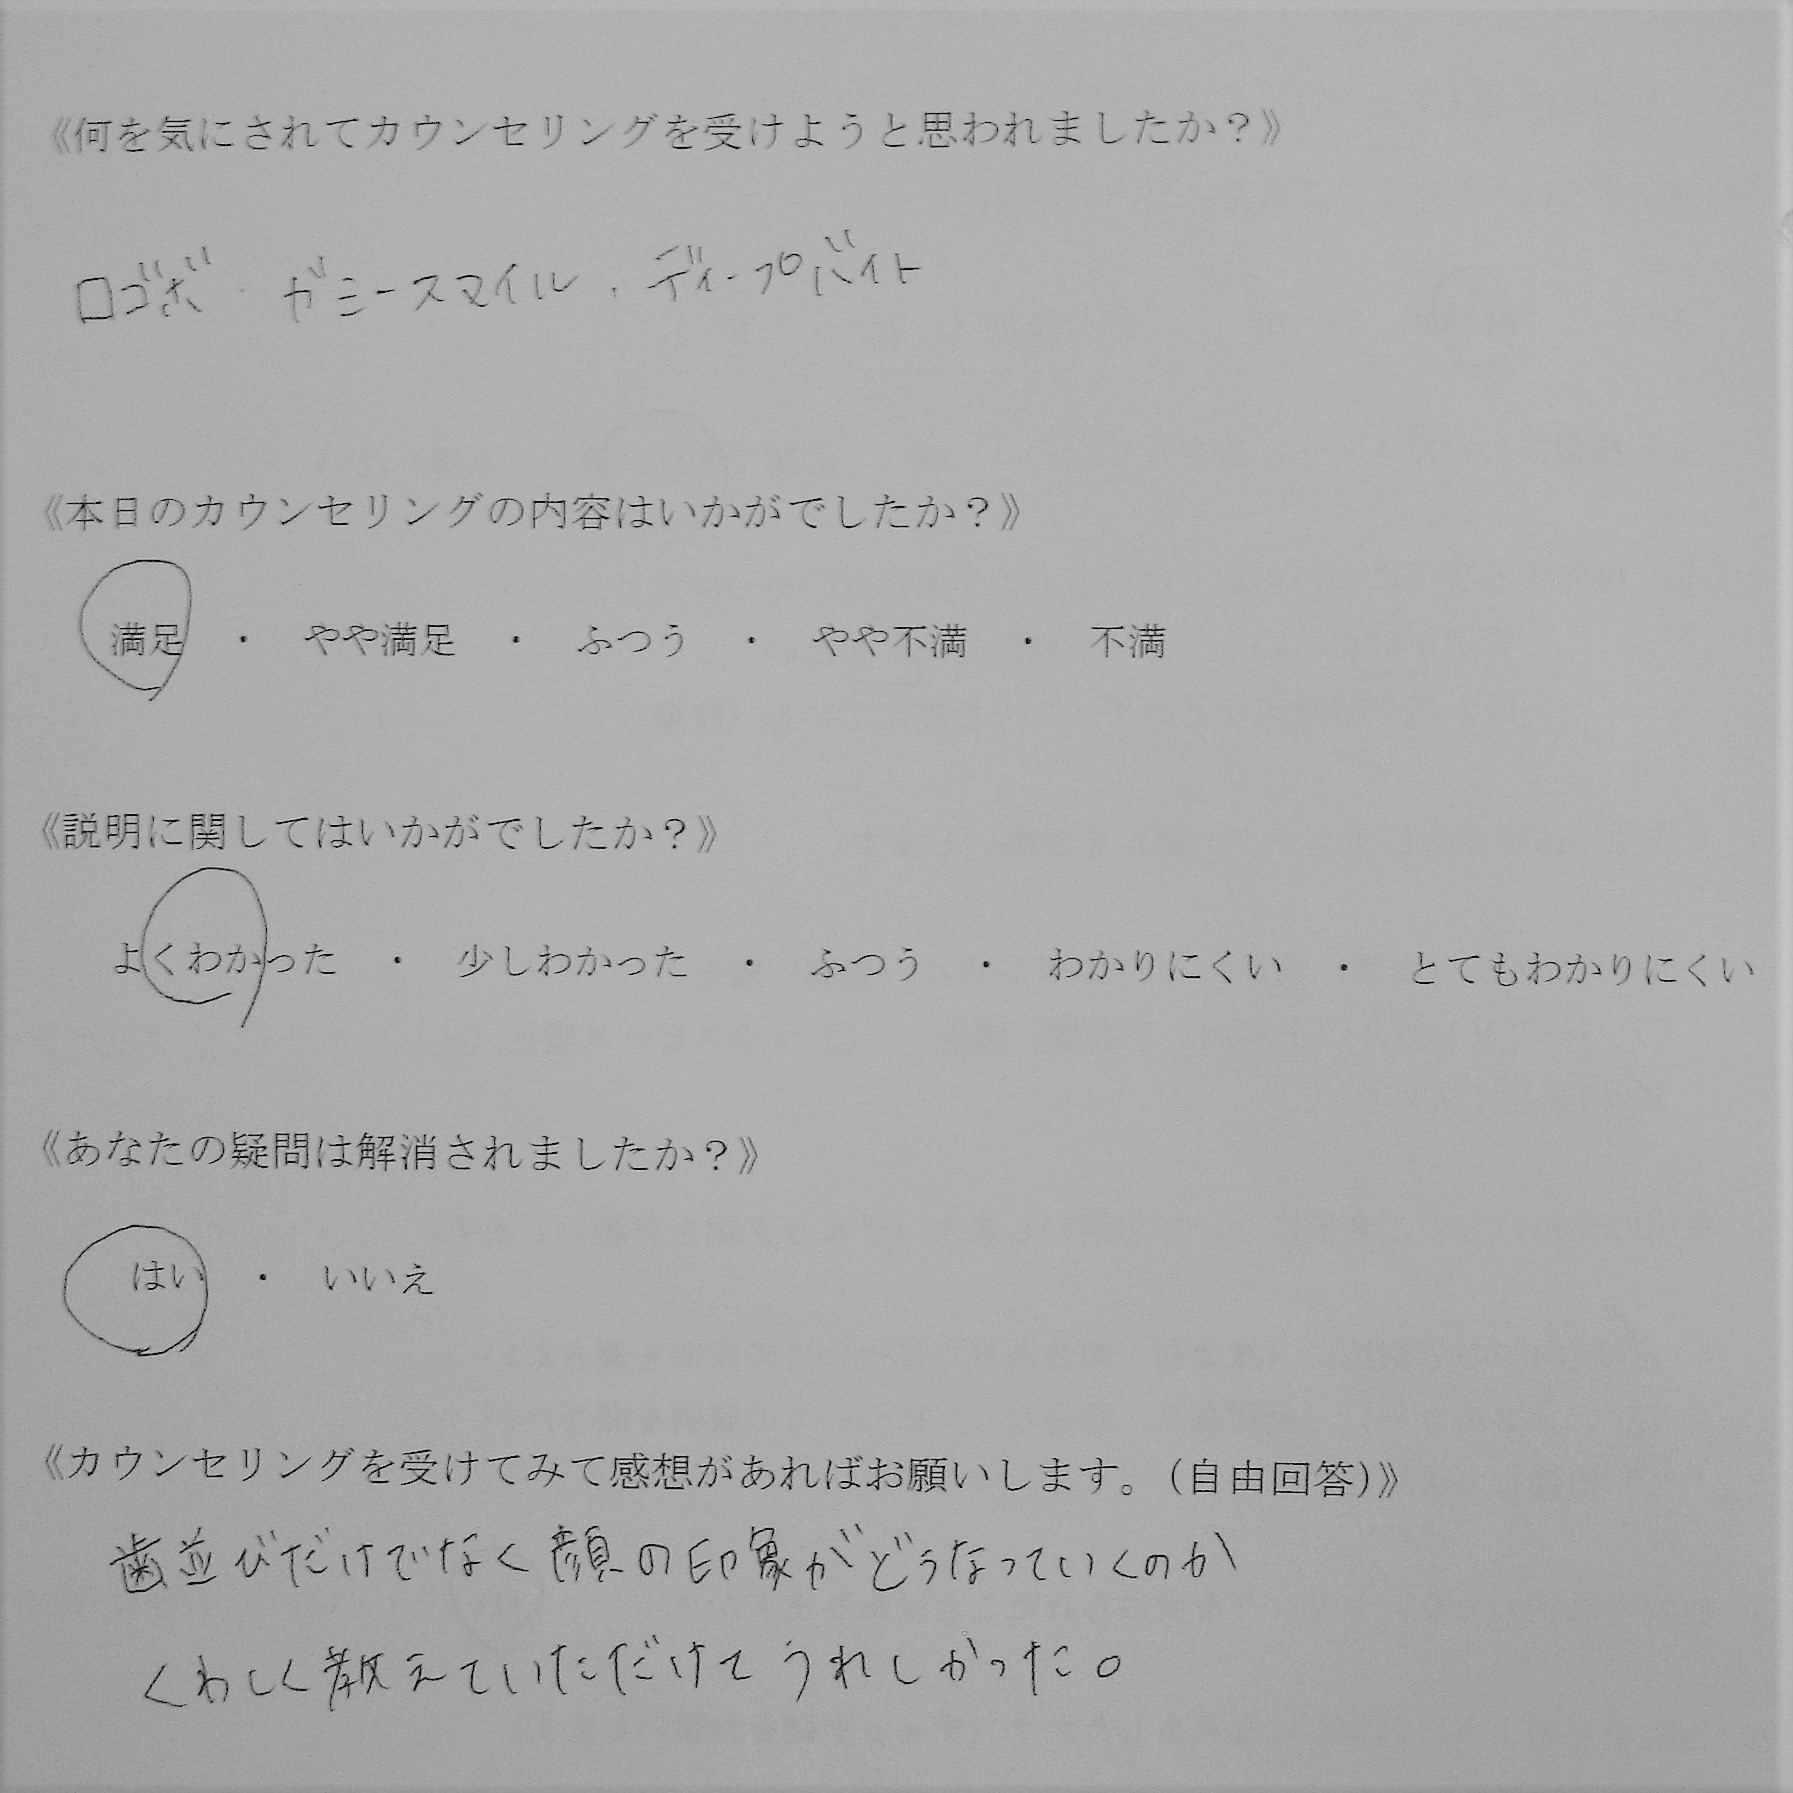 《何を気にされてカウンセリングを受けようと思われましたか？》
口ゴボ・ガミースマイル・ディープバイト
《本日のカウンセリングの内容はいかがでしたか？》
満足 ・ やや満足 ・ ふつう ・ やや不満 ・ 不満
《説明に関してはいかがでしたか？》
よくわかった ・ 少しわかった ・ ふつう ・ わかりにくい ・ とてもわかりにくい
《あなたの疑問は解消されましたか？》
はい ・ いいえ
《カウンセリングを受けてみて感想があればお願いします。(自由回答)》
歯並びだけでなく顔の印象がどうなっていくのか
くわしく教えていただけてうれしかった。